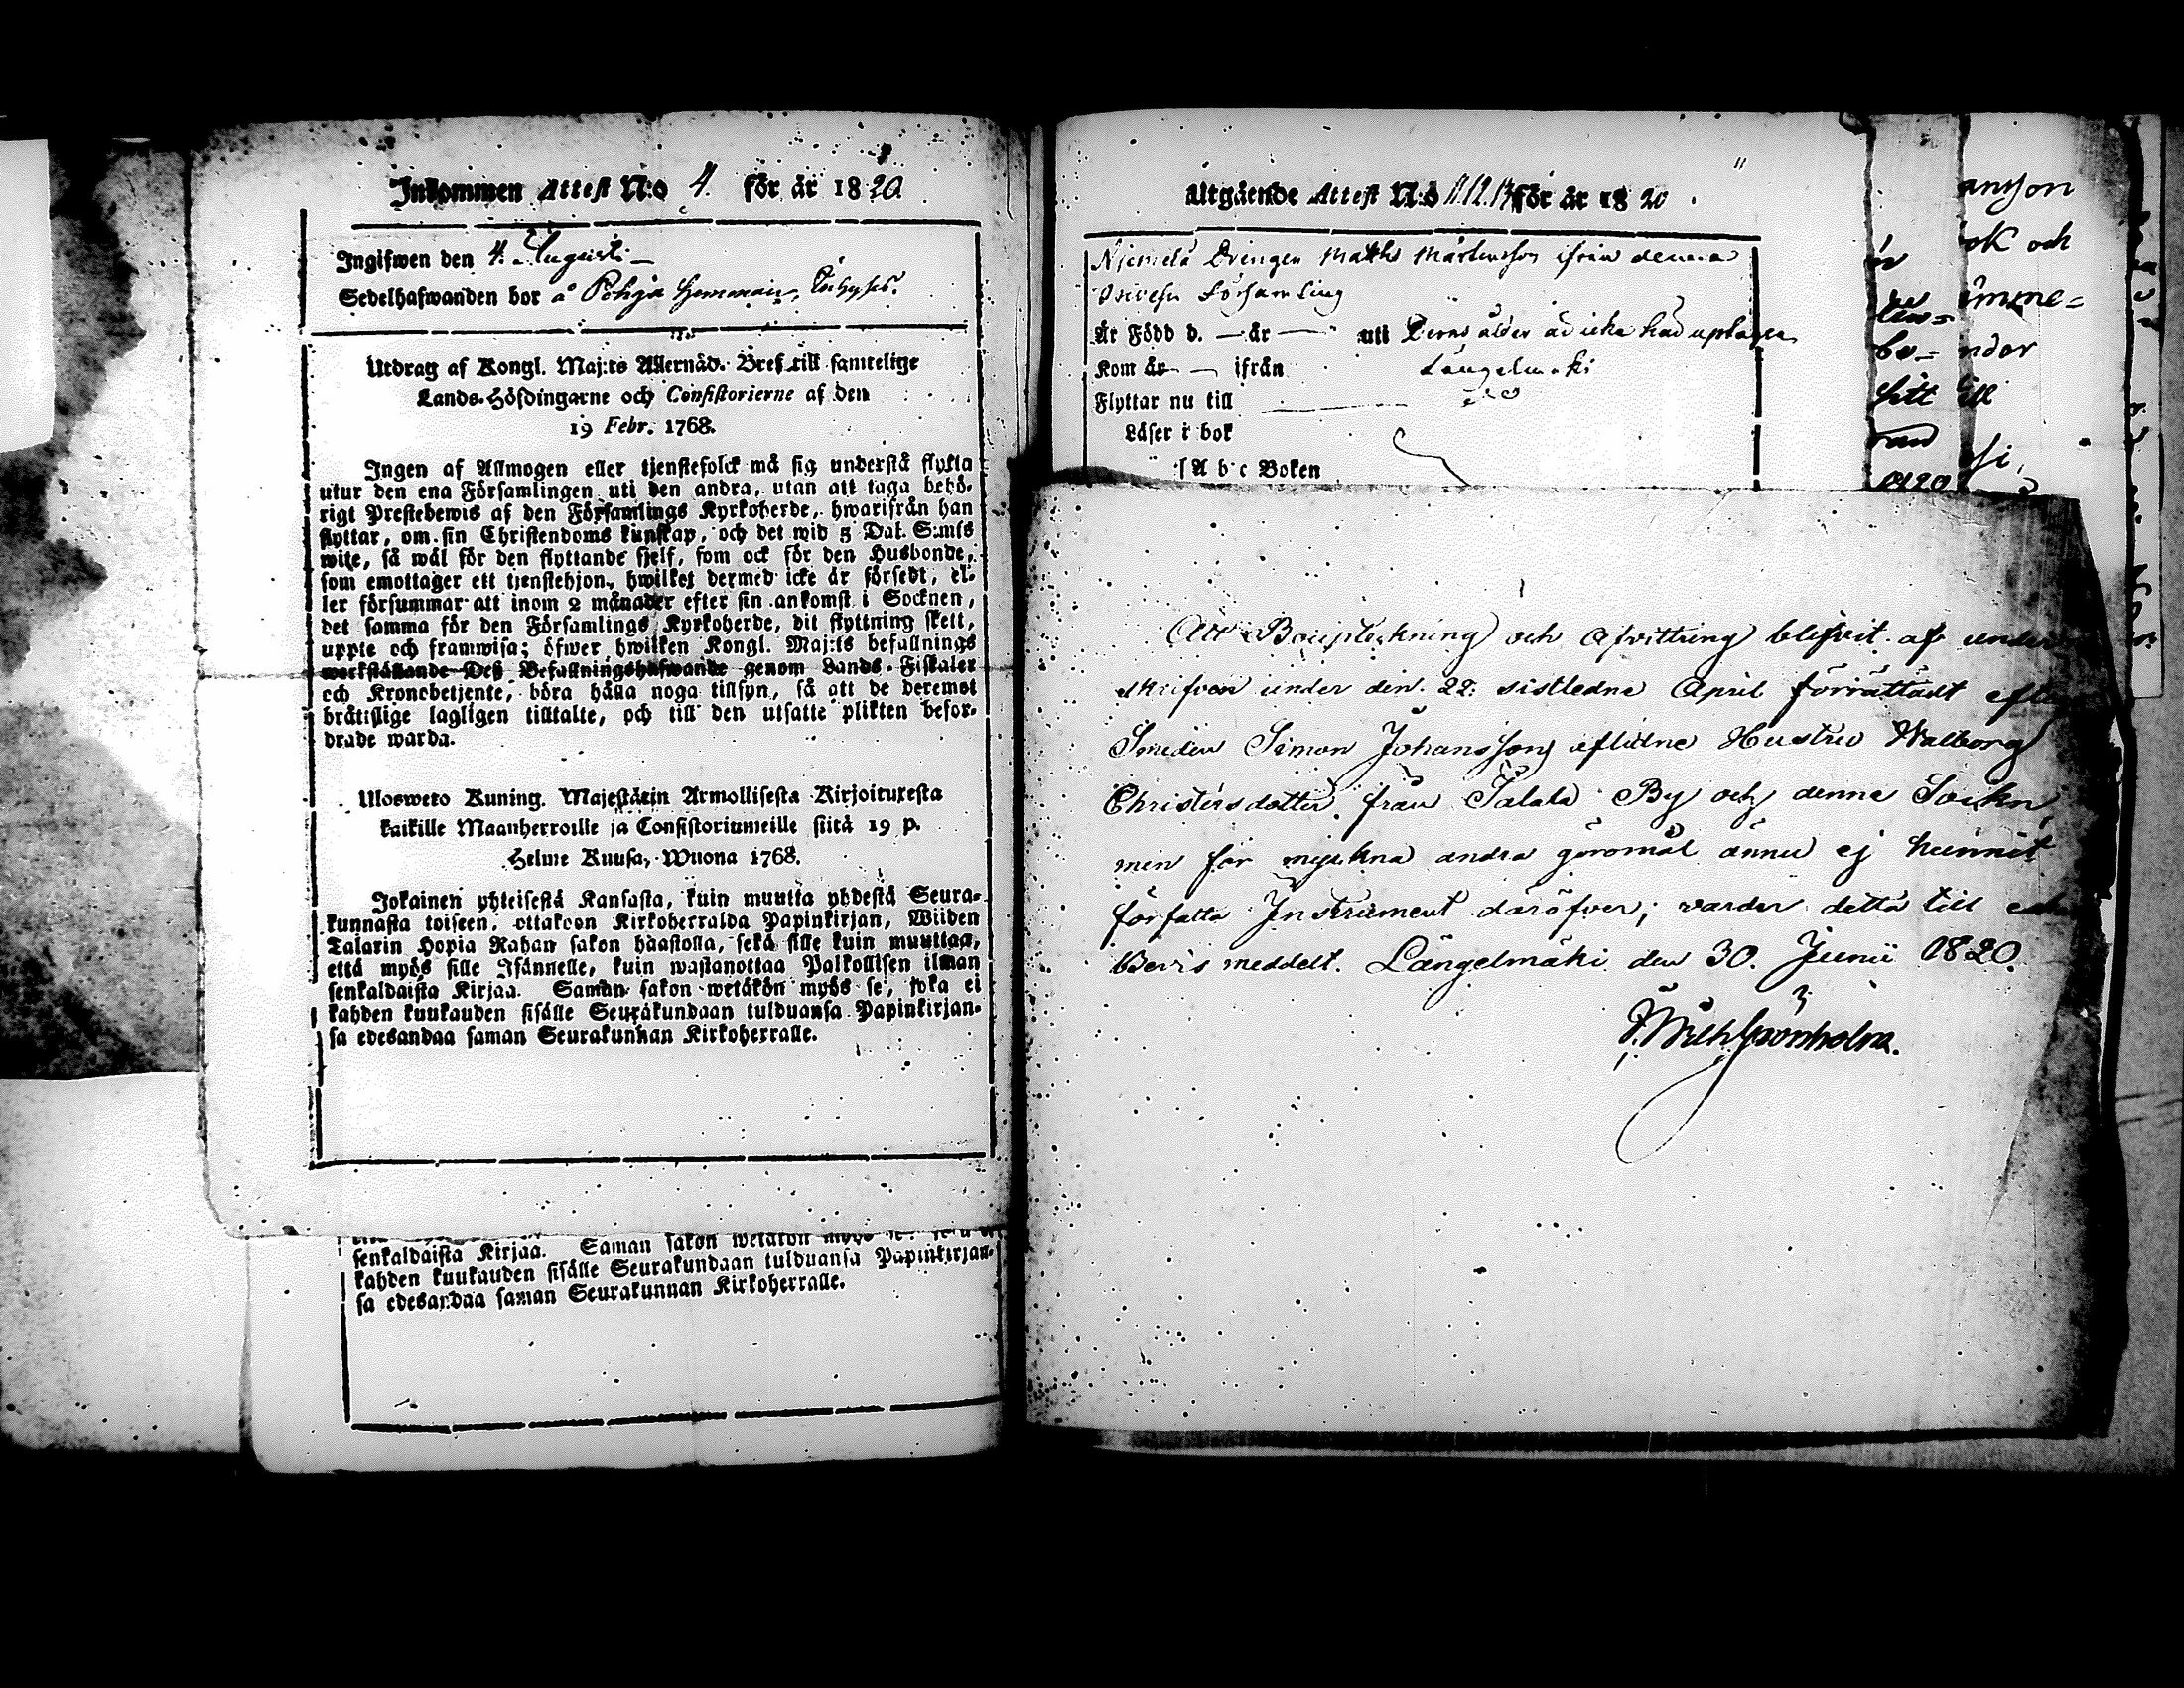 Inkommen Attest N:o 4. för år 1820.
Ingifwen den 4. Augusti
Sedelhafwanden bor å Pohja hemman,
Utdrag af Kongl. Maj:ts Allernåd. Bref till samtelige
Lands-Höfdingarne och Consistorierne af den
19 Febr. 1768.
Ingen af Allmogen eller tjenstefolck må sig understå flytta
utur den ena Församlingen uti den andra, utan att taga behö-
rigt Prestebewis af den Församlings Kyrkoherde, hwarifrån han
flyttar, om sin Christendoms kunskap, och det wid 5 Dal. S:mts
wite, så wäl för den flyttande sjelf, som ock för den Husbonde,
som emottager ett tjenstehjon, hwilket dermed icke är försedt, el-
ler försummar att inom 2 månader efter sin ankomst i Socknen,
det samma för den Församlings Kyrkoherde, dit flyttning skett,
uppte och framwisa; öfwer hwilken Kongl. Maj:ts befallnings
werkställande Deß Befallningshafwande genom Lands-Fiskaler
och Kronobetjente, böra hålla noga tillsyn, så att de deremot
bråtislige lagligen tilltalte, och till den utsatte plikten befor-
drade warda.
Ulosweto Kuning. Majestätin Armollisesta Kirjoituxesta
kaikille Maanherroille ja Consistoriumeille siitä 19 p.
Helme Kuusa, Wuona 1768.
Jokainen yhteisestä Kansasta, kuin muutta yhdestä Seura-
kunnasta toiseen, ottakoon Kirkoherralda Papinkirjan, Wiiden
Talarin Hopia Rahan sakon haastolla, sekä sille kuin muuttaa,
että myös sille Isännelle, kuin wastanottaa Palkollisen ilman
senkaldaista Kirjaa. Saman sakon wetäkön myös se, joka ei
kahden kuukauden sisälle Seurakundaan tulduansa Papinkirjan-
sa edesandaa saman Seurakunnan Kirkoherralle.
senkaldaista Kirjaa. Saman sakon wetäkön myös
kahden kuukauden sisälle Seurakundaan tulduansa Papinkirjan-
sa edesandaa saman Seurakunnan Kirkoherralle.
Utgående Attest N:o 11.12.13 för år 1820.
Niemelä Drengen Matths Mårtensson ifrån denna
Församling
Är Född d. — år — uti Deras ålder
Kom år — ifrån Längelmäki
Flyttar nu till
Läser i bok
A b c Boken
Att Boupteckning och Afvittring blifvit af under
skrifven under den 22: sistledne April förrättadt efter
Smeden Simon Johanssons aflidne Hustru Walborg
Christersdotter från Talala By och denne Sockn,
men för myckna andra göromål ännu ej hunnit
författa Instrument däröfver; varder detta till
Bevis meddelt. Längelmäki den 30. Junii 1820.
Wilh Grönholm.
anson
ok och
ämme-
ndor
till